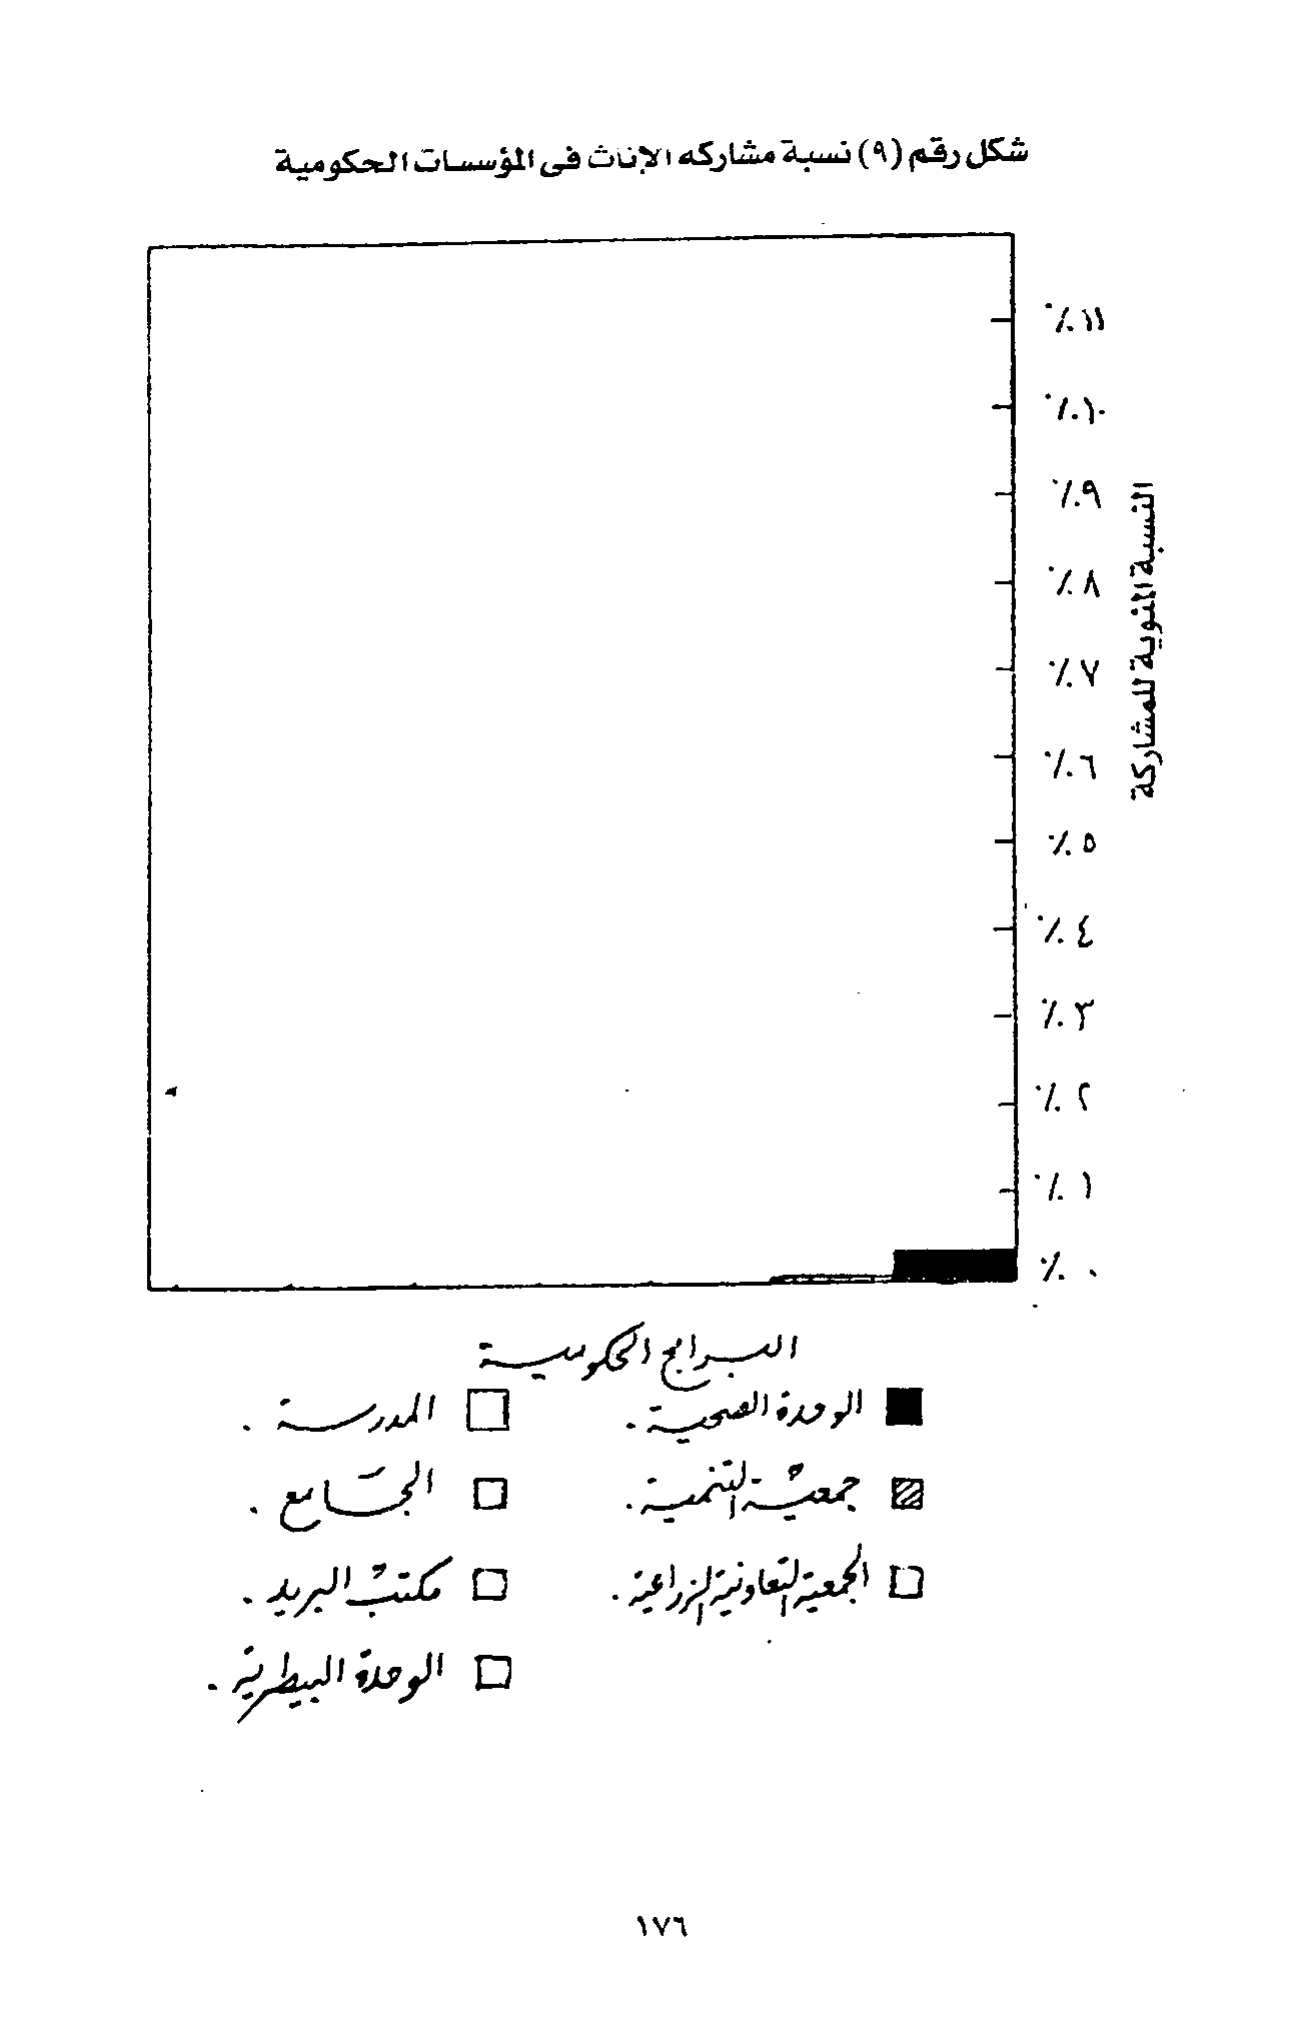 شكل رقم (٩) نسبة مشاركه الإناث فى المؤسسات الحكومية
٪١١
٪١٠
٪٩
٪٨
٪٧
٪٦
٪٥
٪٤
٪٣
٪٢
٪١
٪٠
النسبة المئوية للمشاركة
البرامج الحكومية
الوحدة الصحية.
جمعية التنمية.
الجمعية التعاونية الزراعية.
المدرسة.
الجامع.
مكتب البريد.
الوحدة البيطرية.
١٧٦